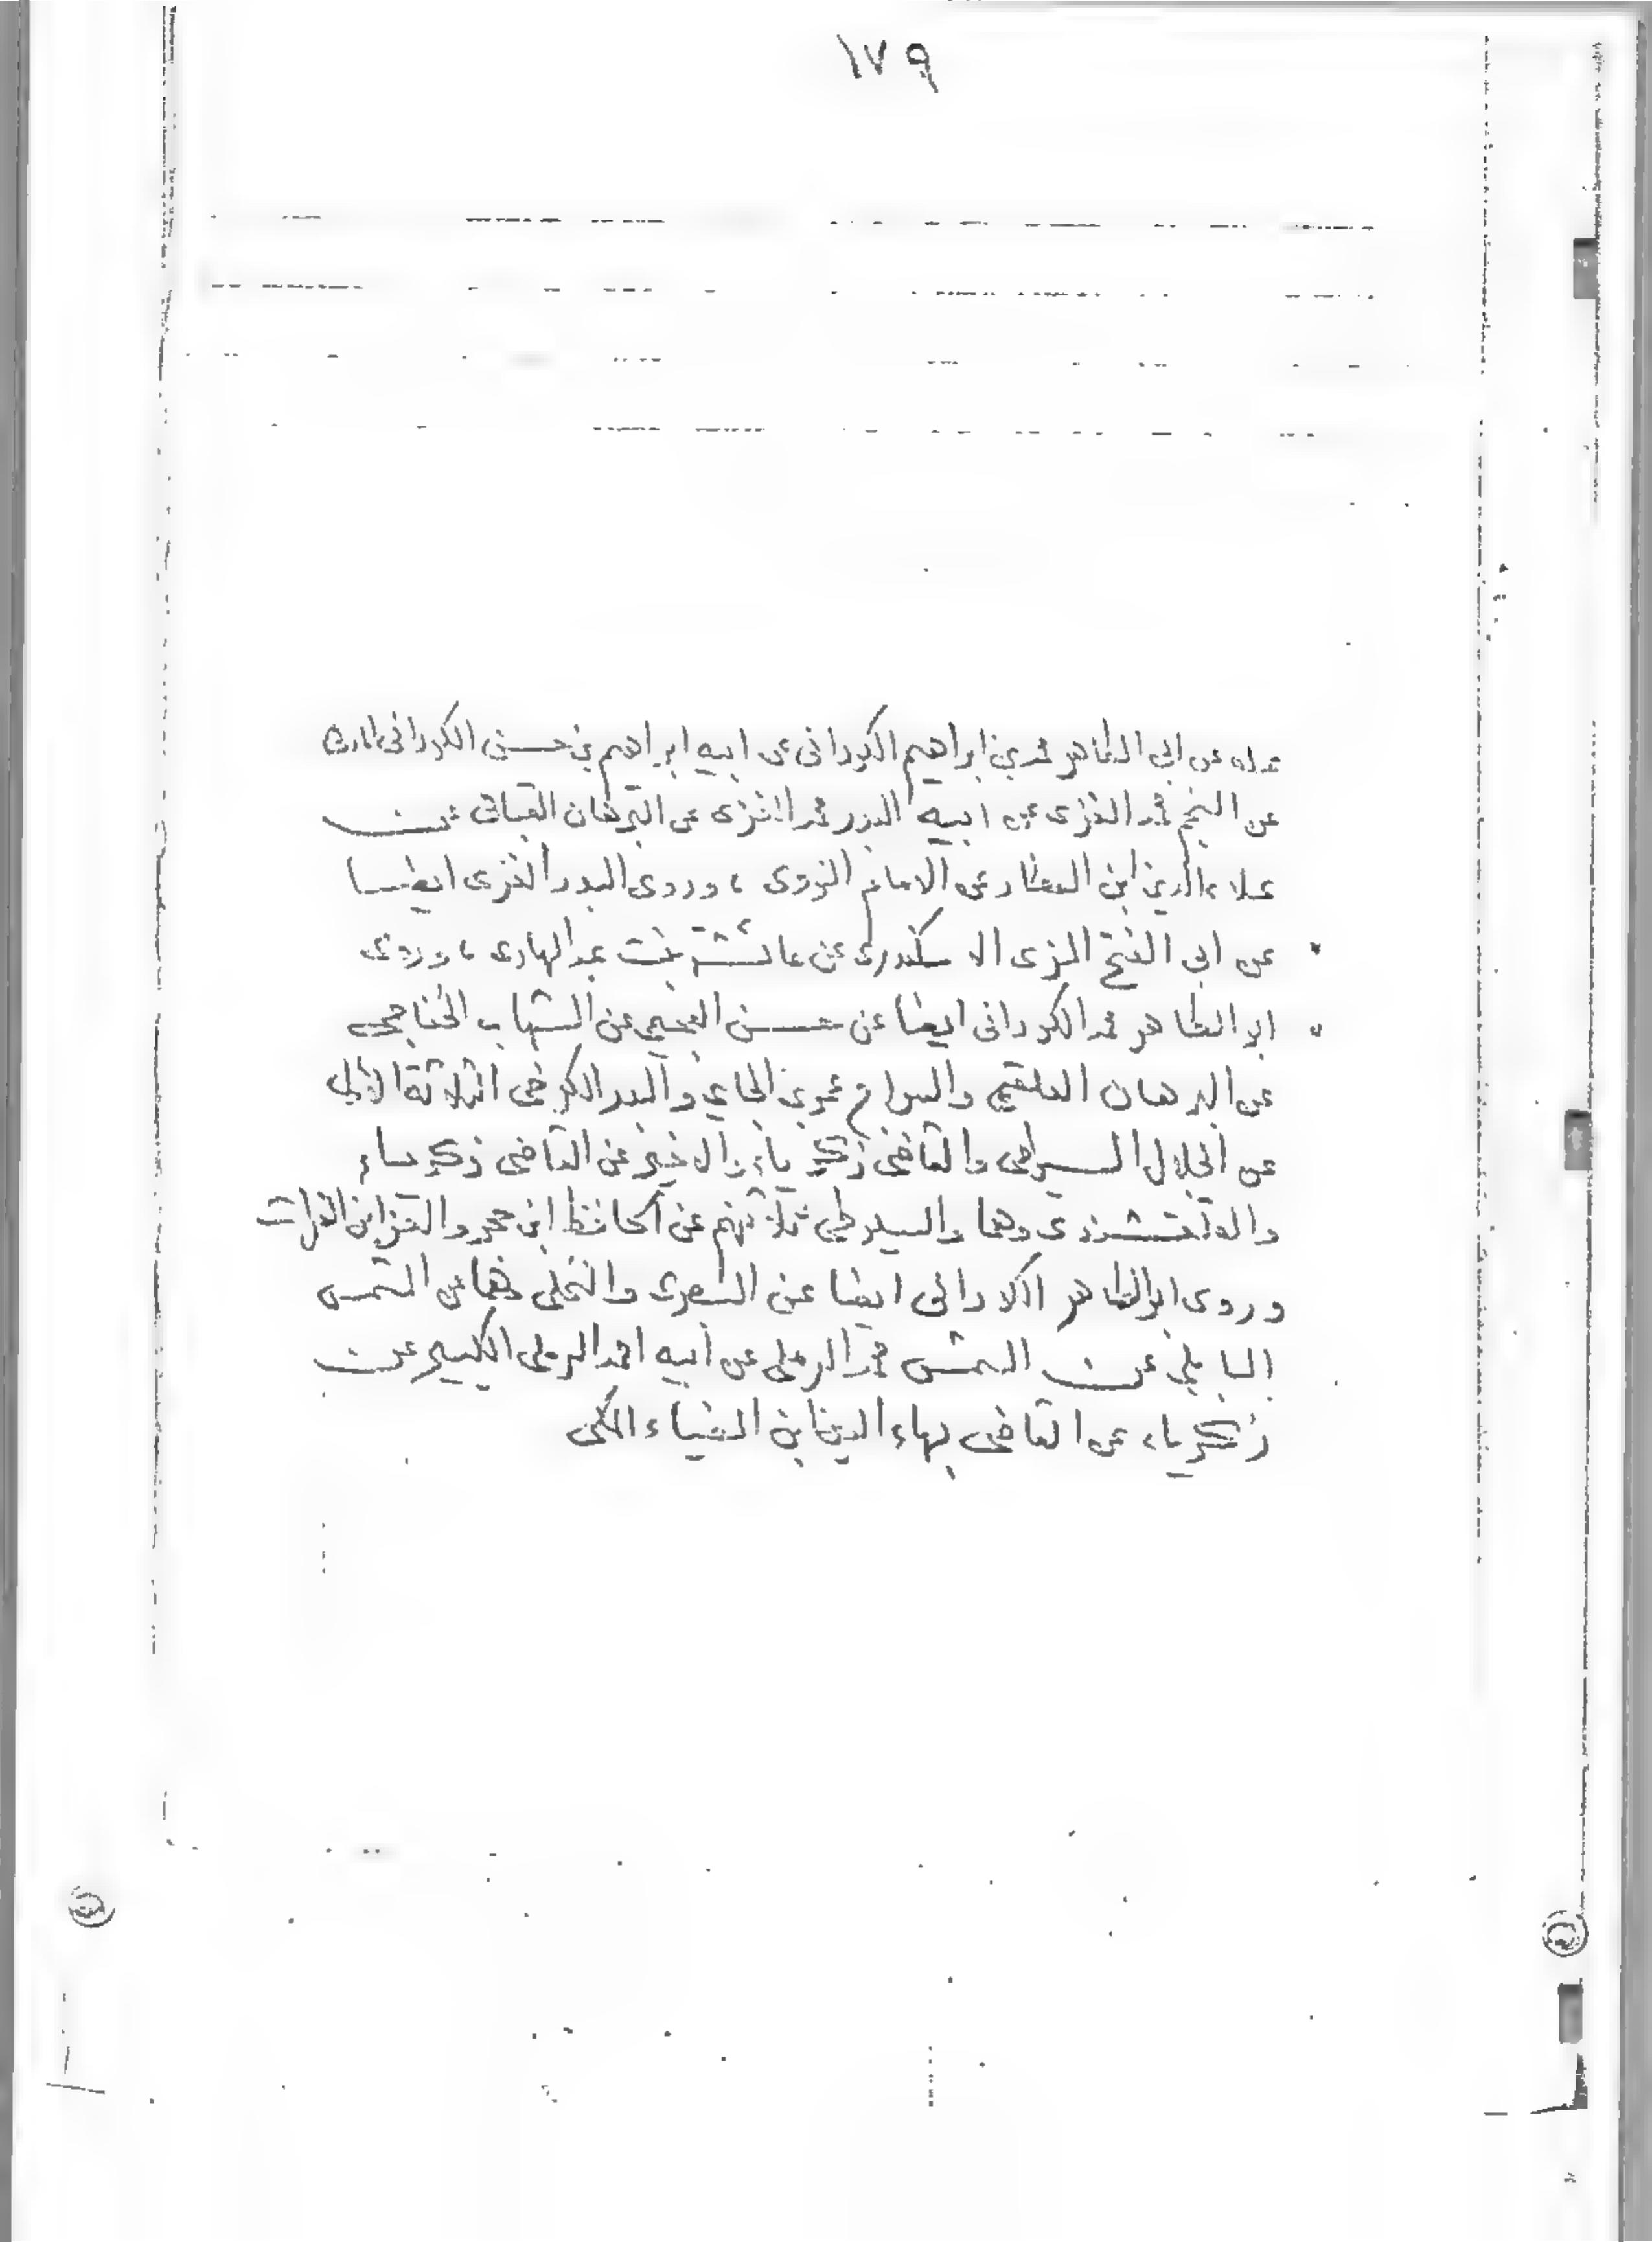 ١٧٩
عن ابي الطاهر محمد بن ابراهيم الكوراني عن ابيه ابراهيم بن حسن الكوراني
عن النجم محمد الغزى عن ابيه البدر محمد الغزى عن البرهان القباقى عن
علاء الدين ابن العطار عن الامام النووى ، وروى البدر الغزى ايضا
عن ابى الفتح المزى الاسكندرى عن عائشة بنت عبد الهادى ، وروى
ابو الطاهر محمد الكورانى ايضا عن حسن العجيمى عن الشهاب الخفاجى
عن البرهان العلقمى والسراج عمر بن الجاي والبدر الكرخى الثلاثة
عن الجلال السيوطى والقاضى زكرياء والاخير عن القاضى زكرياء
والقلقشندى وهما والسيوطى ثلاثتهم عن الحافظ ابن حجر والعز ابن الفرات
وروى ابو الطاهر الكورانى ايضا عن البصرى والنخلى وهما عن الشمس
البابلى عن الشمس محمد الرملى عن ابيه احمد الرملى الكبير عن
زكرياء عن القاضى بهاء الدين ابن الضياء المكى